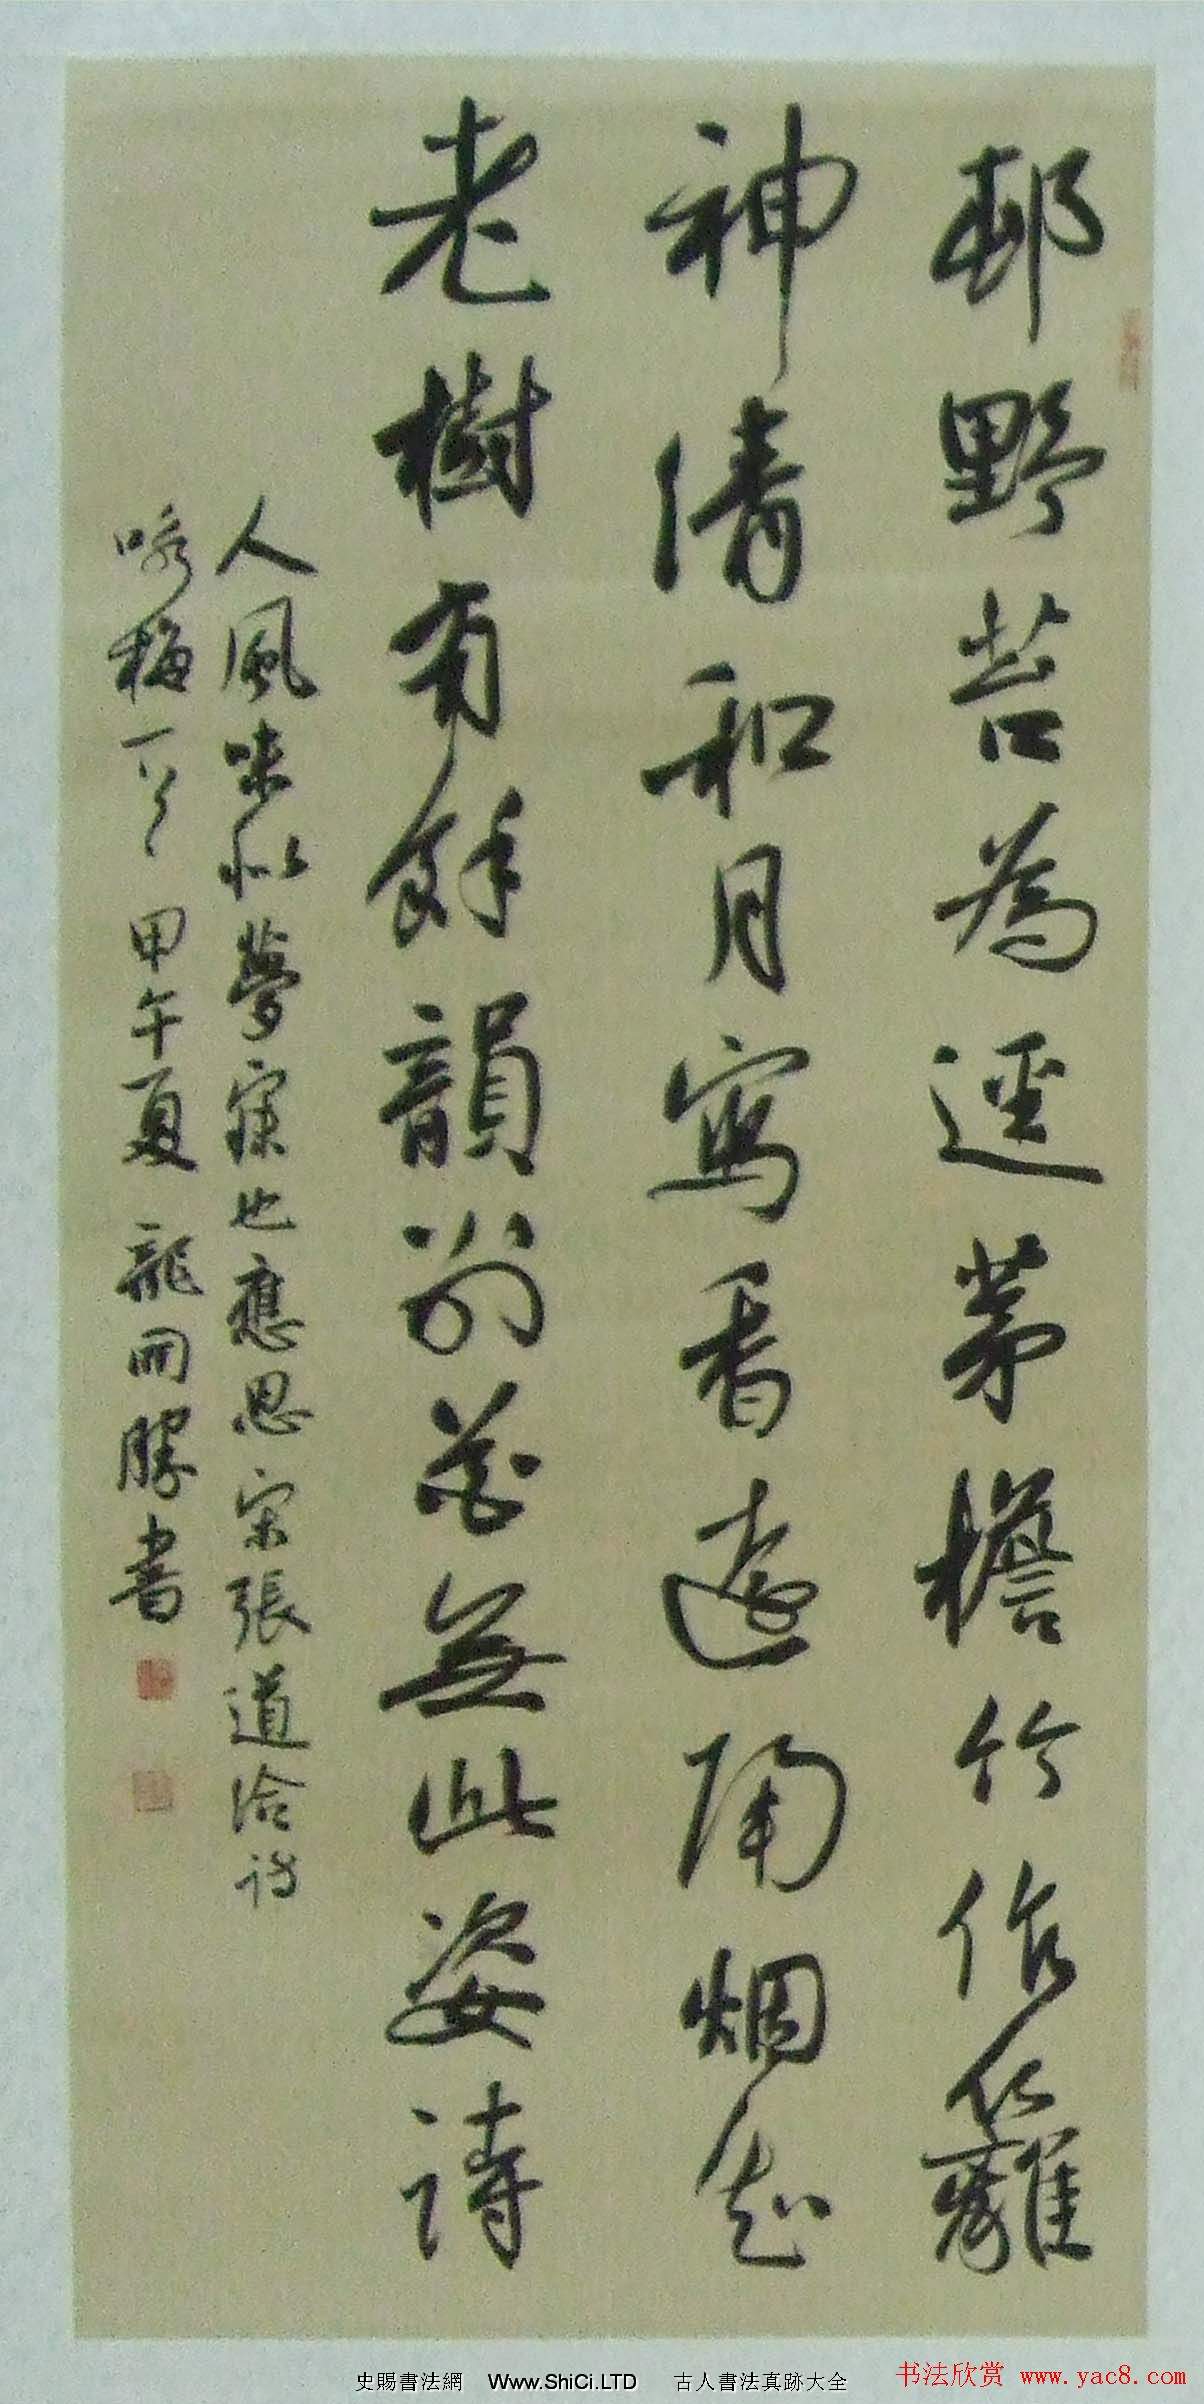 邨野苔為逕茅檐竹作籬
神清和月寫香遠隔烟知
老樹有餘韻別花無此姿詩
人風味似夢寐也應思宋張道洽詩
咏梅一首甲午夏龍開勝書
史賜書法網 Www.ShiCi.LTD 古人書法真跡大全
书法欣赏 www.yac8.com